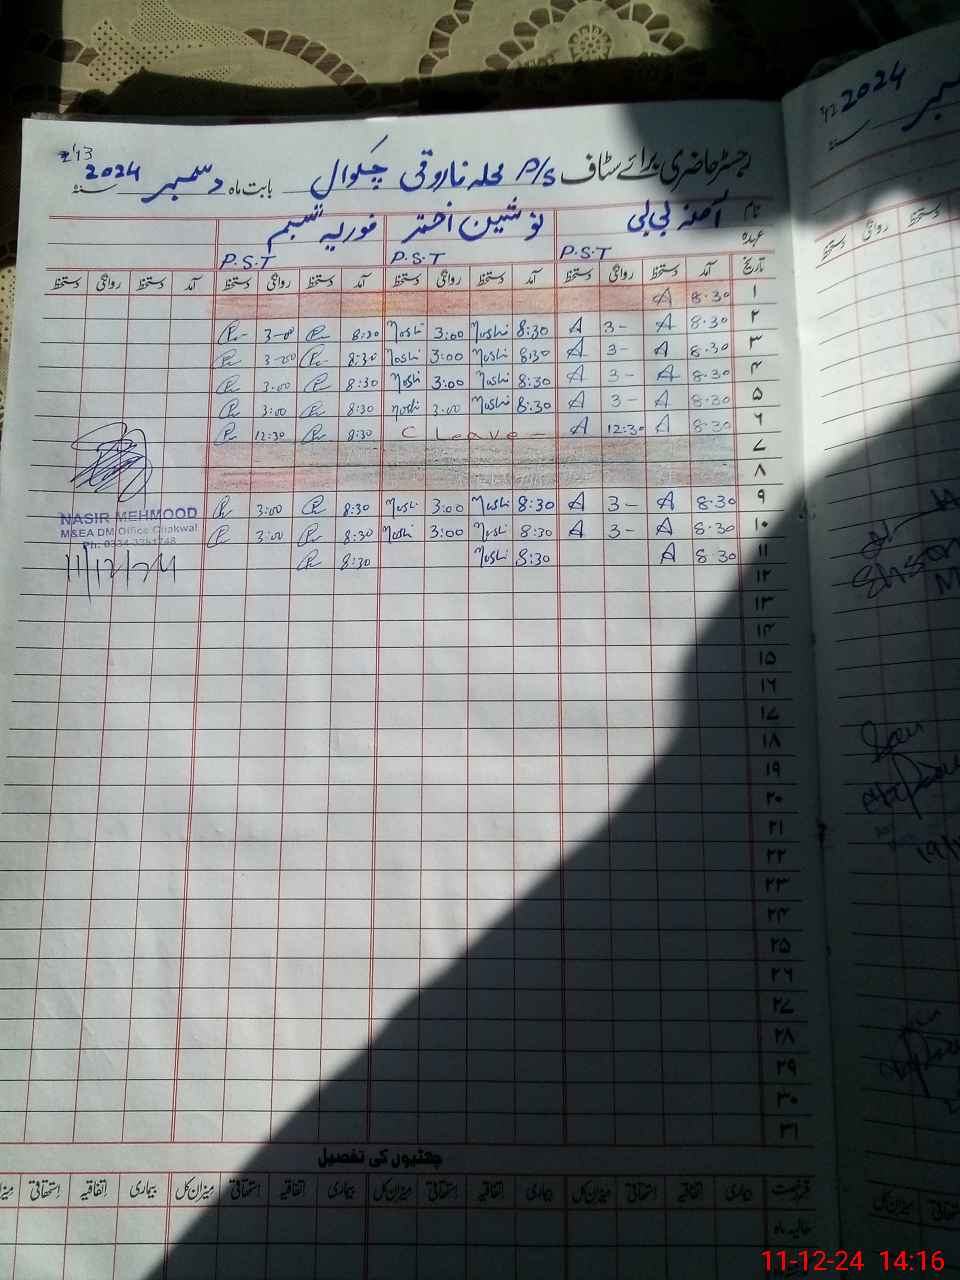 رجسٹر حاضری برائے سٹاف P/S محلہ فاروقی چکوال بابت ماہ دسمبر سنہ 2024
نام آمنہ بی بی نوشین اختر فوزیہ تبسم
عہدہ P.S.T P.S.T P.S.T
تاریخ آمد دستخط روانگی دستخط آمد دستخط روانگی دستخط آمد دستخط روانگی دستخط آمد دستخط روانگی دستخط
۱ 8.30 A
۲ 8.30 A 3- A 8:30 Noshi 3:00 Noshi 8:30 3-00
۳ 8.30 A 3- A 8:30 Noshi 3:00 Noshi 8:30 3-00
۴ 8.30 A 3- A 8:30 Noshi 3:00 Noshi 8:30 3:00
۵ 8.30 A 3- A 8:30 Noshi 3:00 Noshi 8:30 3:00
۶ 8.30 A 12:30 A C Leave 8:30 12:30
۷
۸
۹ 8.30 A 3- A 8:30 Noshi 3:00 Noshi 8:30 3:00
۱۰ 8.30 A 3- A 8:30 Noshi 3:00 Noshi 8:30 3:00
۱۱ 8.30 A 8:30 Noshi 8:30
NASIR MEHMOOD
M&EA DM Office Chakwal
11/12/24
۱۲
۱۳
۱۴
۱۵
۱۶
۱۷
۱۸
۱۹
۲۰
۲۱
۲۲
۲۳
۲۴
۲۵
۲۶
۲۷
۲۸
۲۹
۳۰
۳۱
چھٹیوں کی تفصیل
رخصت بیماری اتفاقیہ استحقاقی میزان کل بیماری اتفاقیہ استحقاقی میزان کل بیماری اتفاقیہ استحقاقی میزان کل بیماری اتفاقیہ استحقاقی
حالیہ ماہ
2024
دستخط روانگی دستخط
11-12-24 14:16